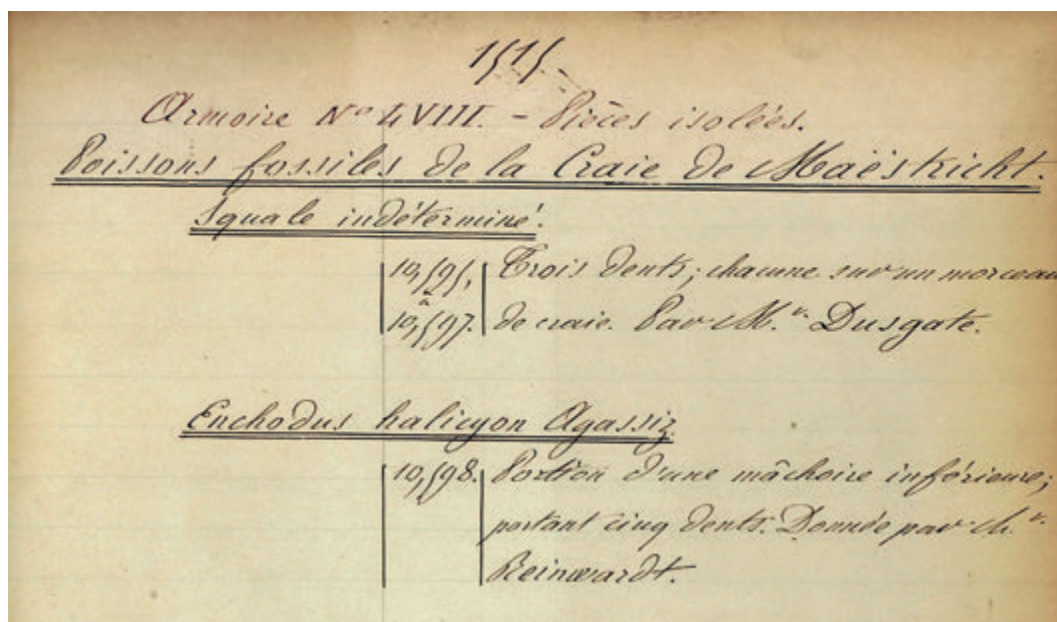 1515.
Armoire No LVIII. - Pièces isolées.
Poissons fossiles de la Craie de Maëstricht.
Squale indéterminé.
10,595, Trois dents; chacune sur un morceau
à
10,597. de craie. Par M.r Dusgate.
Enchodus halicyon Agassiz
10,598. Portion d'une mâchoire inférieure;
portant cinq dents. Donnée par M.r
Reinwardt.